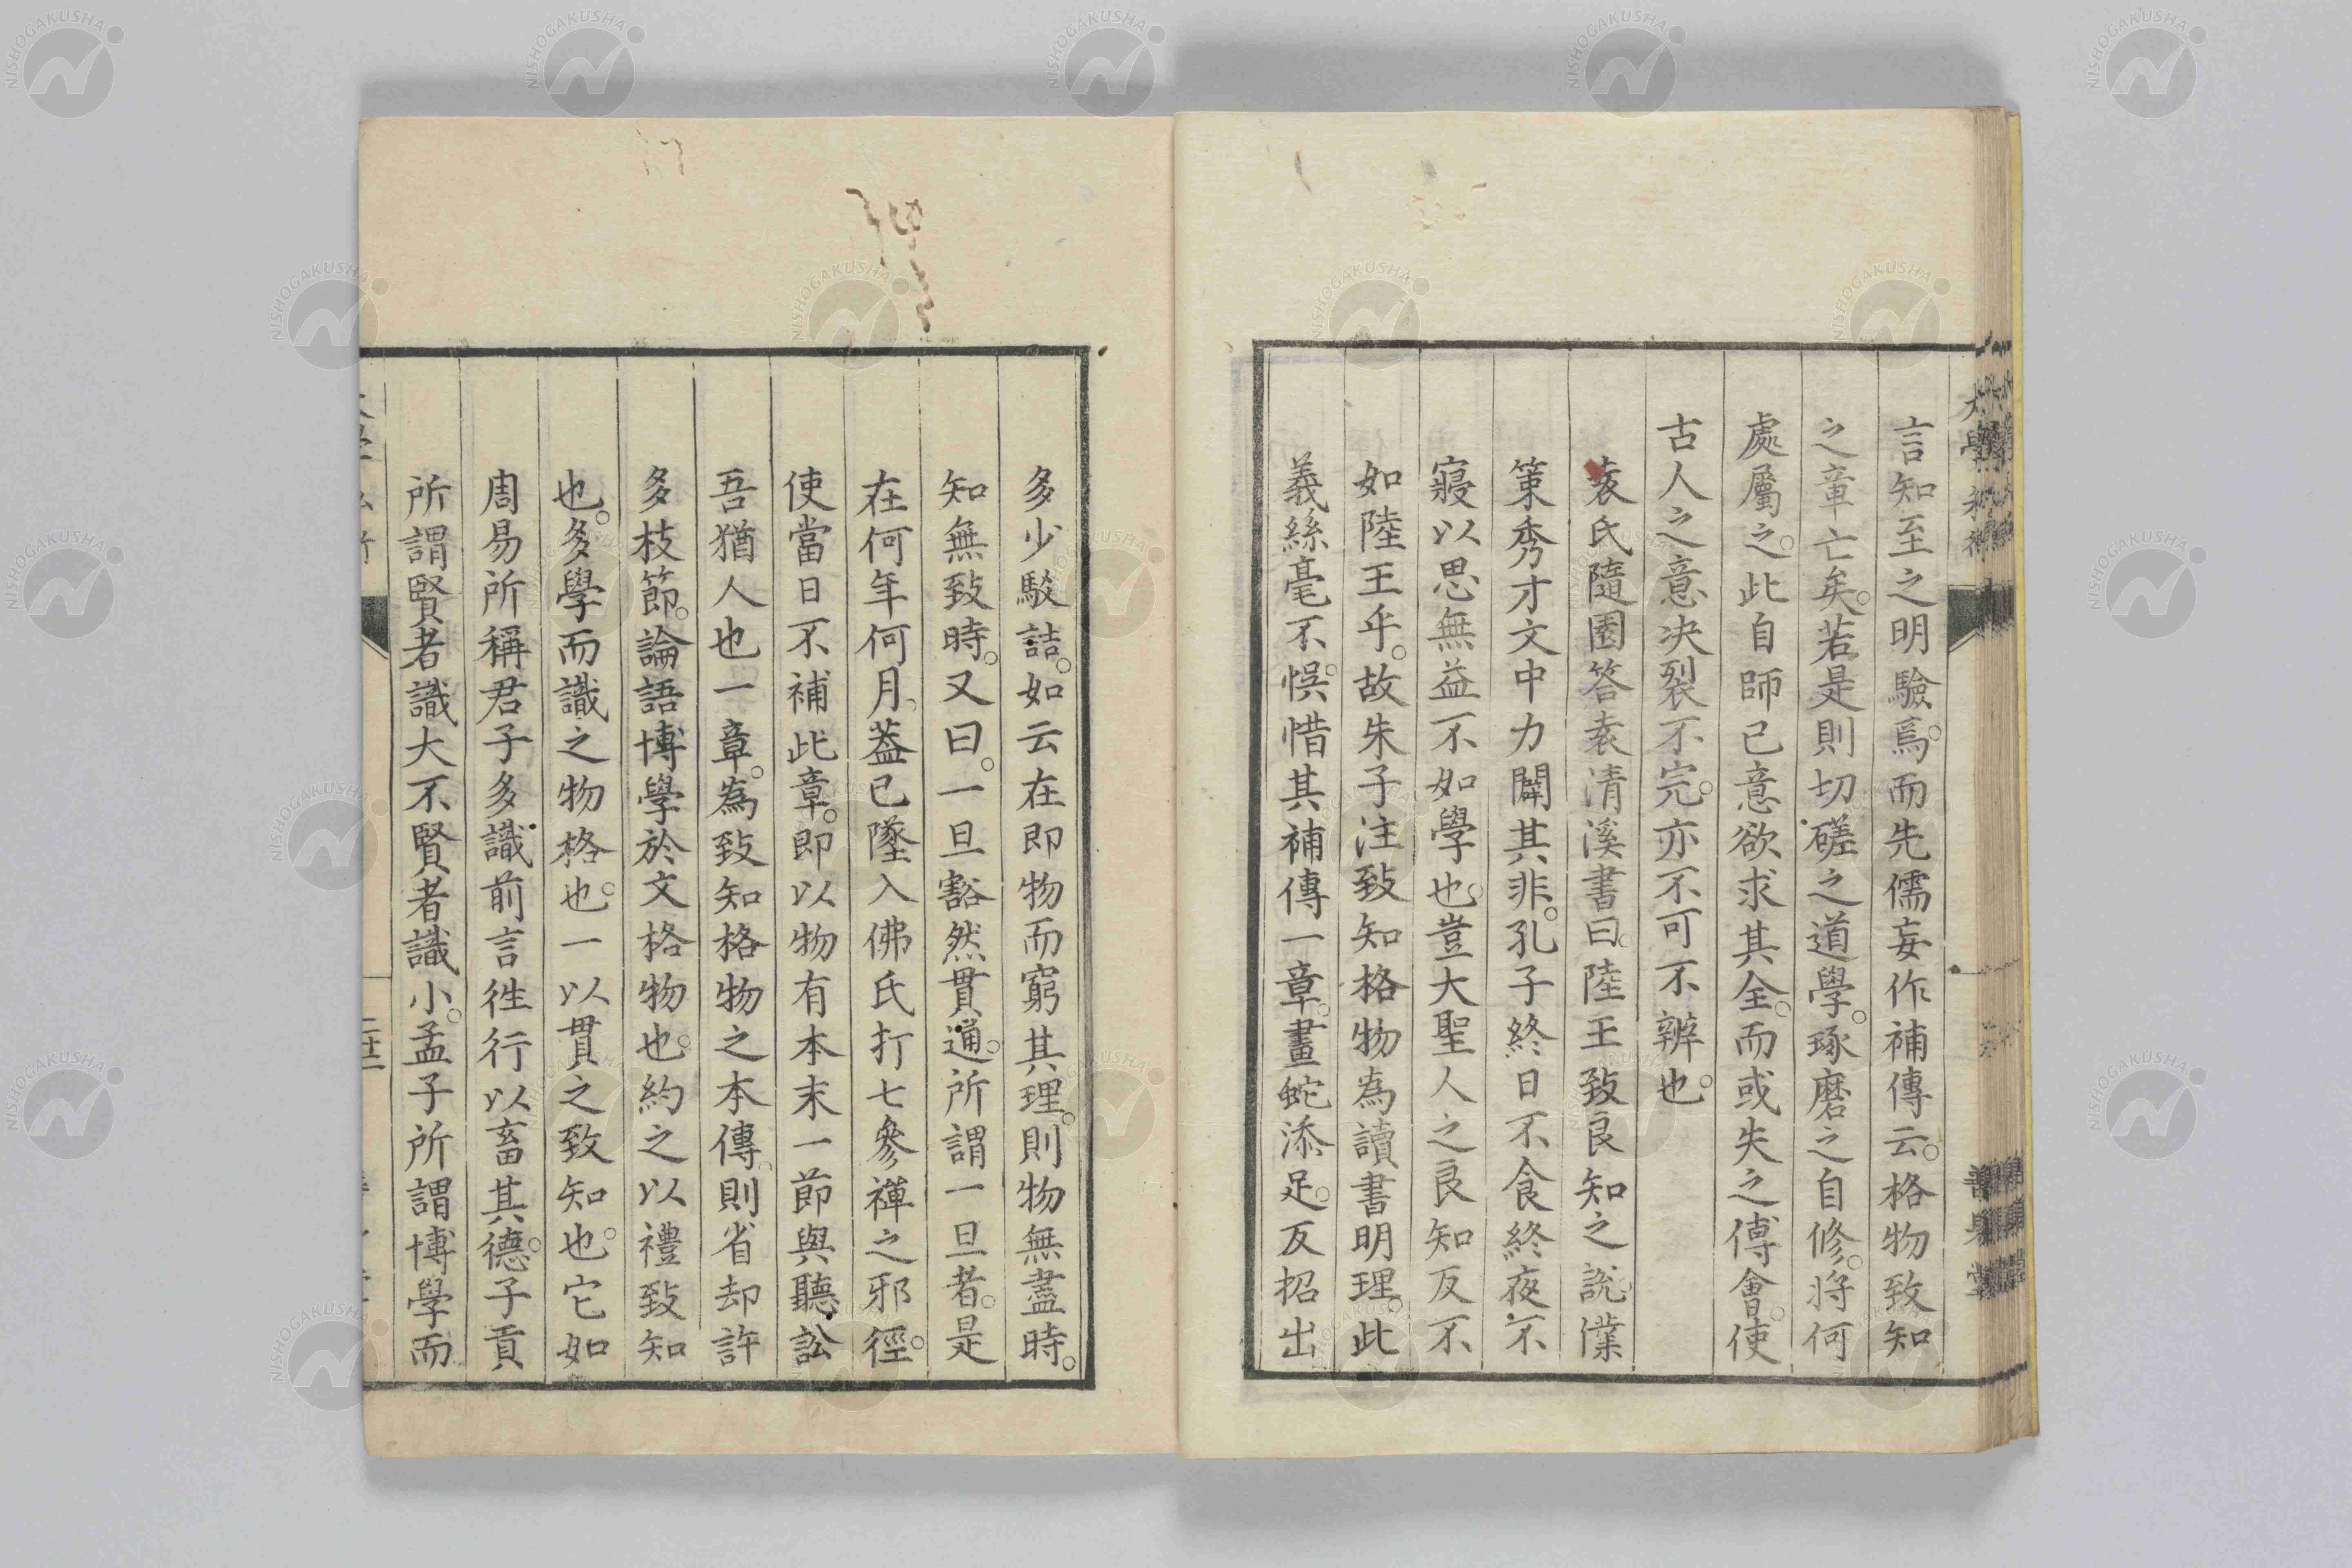 言知至之明驗焉。而先儒妄作補傳云。格物致知
之章亡矣。若是則切磋之道學。琢磨之自修。將何
處屬之。此自師已意欲求其全。而或失之傅會。使
古人之意决裂不完。亦不可不辨也。
袁氏隨園答袁清溪書曰。陸王致良知之說。僕
策秀才文中力闢其非。孔子終日不食終夜不
寢以思無益不如學也。豈大聖人之良知反不
如陸王乎。故朱子注致知格物為讀書明理。此
義絲毫不悞。惜其補傳一章。畫蛇添足。反招出
多少駁詰。如云在即物而窮其理。則物無盡時。
知無致時。又曰。一旦豁然貫通。所謂一旦者。是
在何年何月。葢已墜入佛氏打七參禪之邪徑。
使當日不補此章。即以物有本末一節與聽訟
吾猶人也一章。為致知格物之本傳。則省却許
多枝節。論語博學於文格物也。約之以禮致知
也。多學而識之物格也。一以貫之致知也。它如
周易所稱君子多識前言徃行以畜其德。子貢
所謂賢者識大不賢者識小。孟子所謂博學而
NISHOGAKUSHA